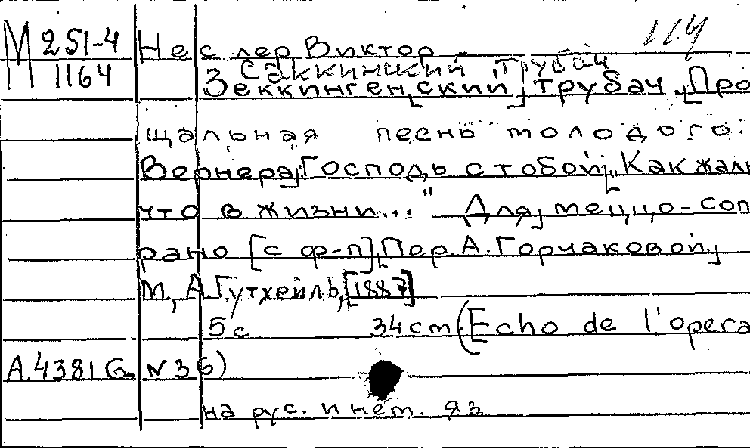 М 251-4 Несслер Виктор 114
1164 Саккинский трубач
Зеккинген[ский] трубач. [Про
щальная песнь молодого
Вернера] Господь с тобой, "Как жаль
что в жизни..." Для меццо-соп
рано [с ф-п] Пер. А. Горчаковой
М, А. Гутхейль, [1887]
5 с 34 cm (Echo de l'opera
А.4381 G. N 36)
на рус. и нем. яз